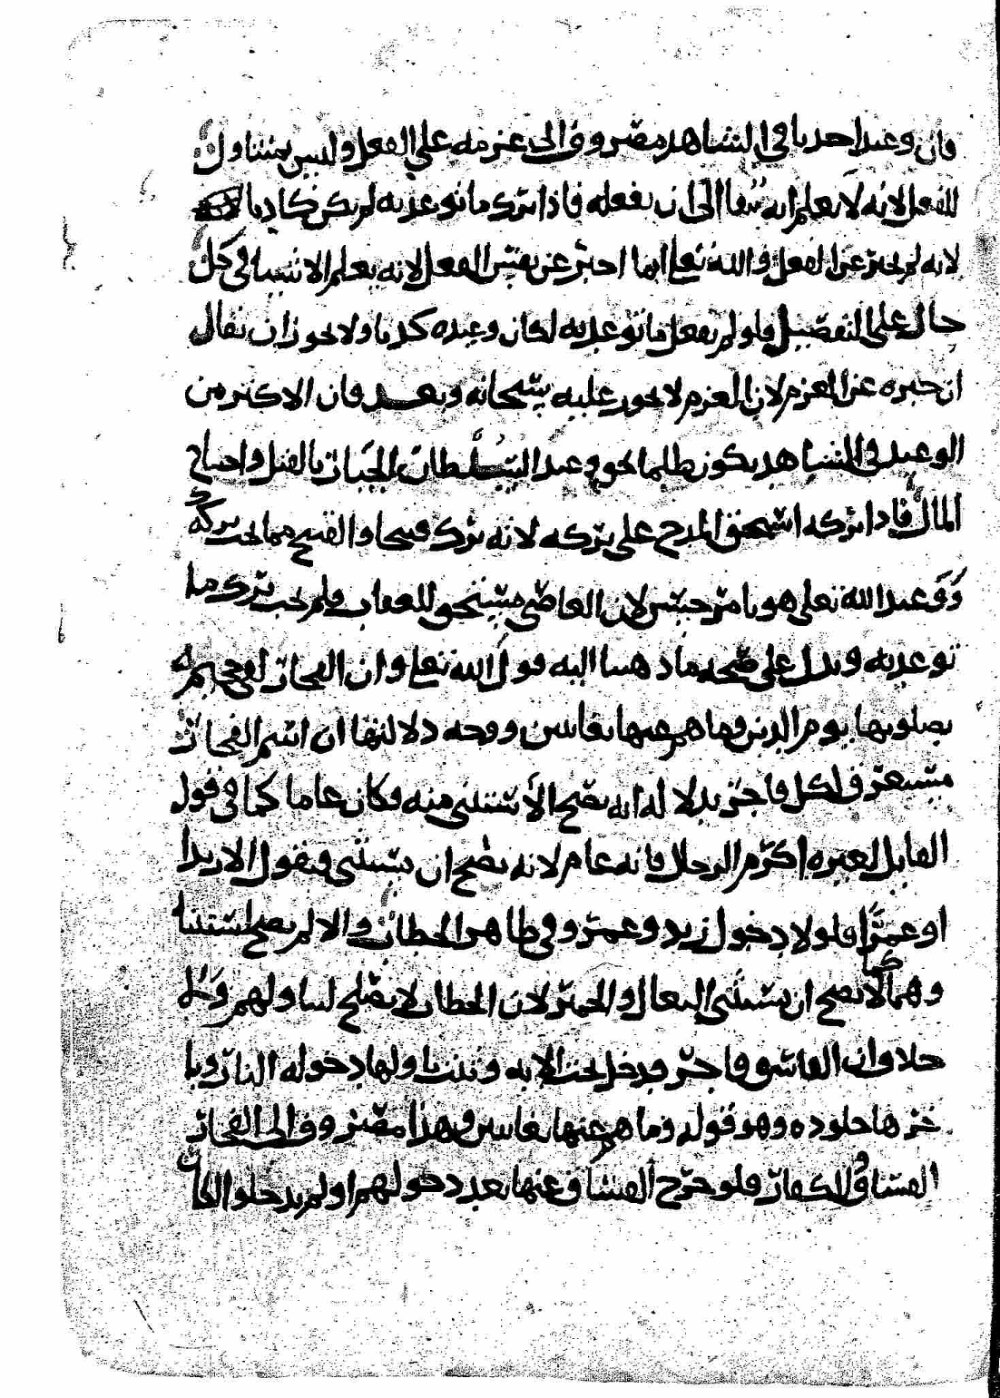 فان وعيد احدنا في الشاهد مصروف الى عزمه على الفعل وليس بمتناول
للفعل لانه لا يعلم انه يبقا الى ان يفعله فاذا ترك ما توعد به لم يكن كاذبا
لانه لم يخبر عن الفعل والله تعالى انما اخبر عن نفس الفعل لانه يعلم الاشيا في كل
حال على التفصيل فلو لم يفعل ما توعد به لكان وعيده كذبا ولا يجوز ان يقال
ان خبره عن العزم لان العزم لا يجوز عليه سبحانه وبعد فان الاكثر من
الوعيد في الشاهد يكون ظلما نحو وعيد السلطان الجبار بالقتل واجتياح
المال فاذا تركه استحق المدح على تركه لانه ترك قبيحا والقبيح مما يجب تركه
ووعيد الله تعالى هو بامر حسن لان العاصي مستحق للعقاب فلم يجب ترك ما
توعد به ويدل على صحه ما ذهبنا اليه قول الله تعالى وان الفجار لفي جحيم
يصلونها يوم الدين وما هم عنها بغائبين ووجه دلالتها ان اسم الفجار
مستغرق لكل فاجر بدلاله انه يصح الاستثنى منه فكان عاما كما في قول
القايل لغيره اكرم الرجال فانه عام لانه يصح ان يستثنى فيقول الا زيدا
او عمرا فلولا دخول زيد وعمرو في ظاهر الخطاب والا لم يصح استثنا
وهما كما لا يصح ان يستثنى البغال والحمير لان الخطاب لا يصلح لتناولهم ولا
خلاف ان الفاسق فاجر فدخل تحت الايه وتناولها دخوله النار وتا
خرها خلوده وهو قوله وما هم عنها بغائبين وهذا مصروف الى الفجار
الفساق والكفار فلو خرج الفساق عنها بعد دخولهم او لم يدخلوا لكان